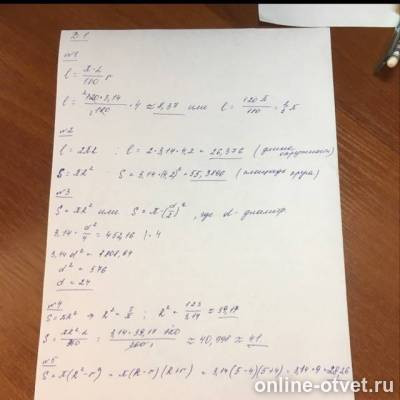 В-1
№1
l = π·α/180 r
l = 120·3,14/180 · 4 ≈ 8,37 или l = 120π/180 = π
№2
l = 2πR ; l = 2·3,14·4,2 = 26,376 (длина окружности)
S = πR² S = 3,14·(4,2)² = 55,3896 (площадь круга)
№3
S = πR² или S = π·(d/2)², где d - диаметр
3,14 · d²/4 = 452,16 | · 4
3,14 d² = 1808,64
d² = 576
d = 24
№4
S = πR² → R² = S/π ; R² = 123/3,14 ≈ 39,17
S = πR²·α/360 = 3,14·39,17·120/360 ≈ 40,998 ≈ 41
№5
S = π(R²-r²) = π(R-r)(R+r) = 3,14(5-4)(5+4) = 3,14·9 = 28,26
online-otvet.ru